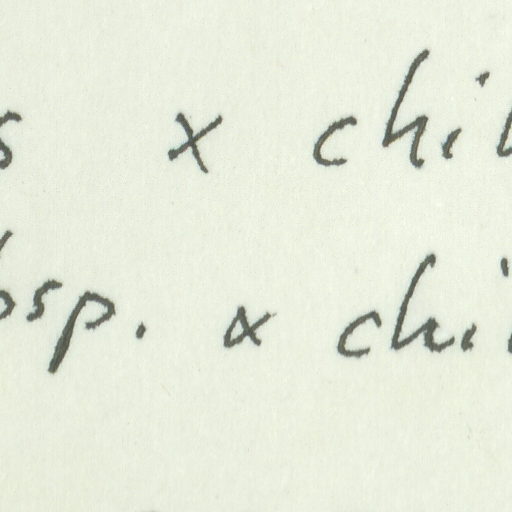 s x chil
bsp. x chi